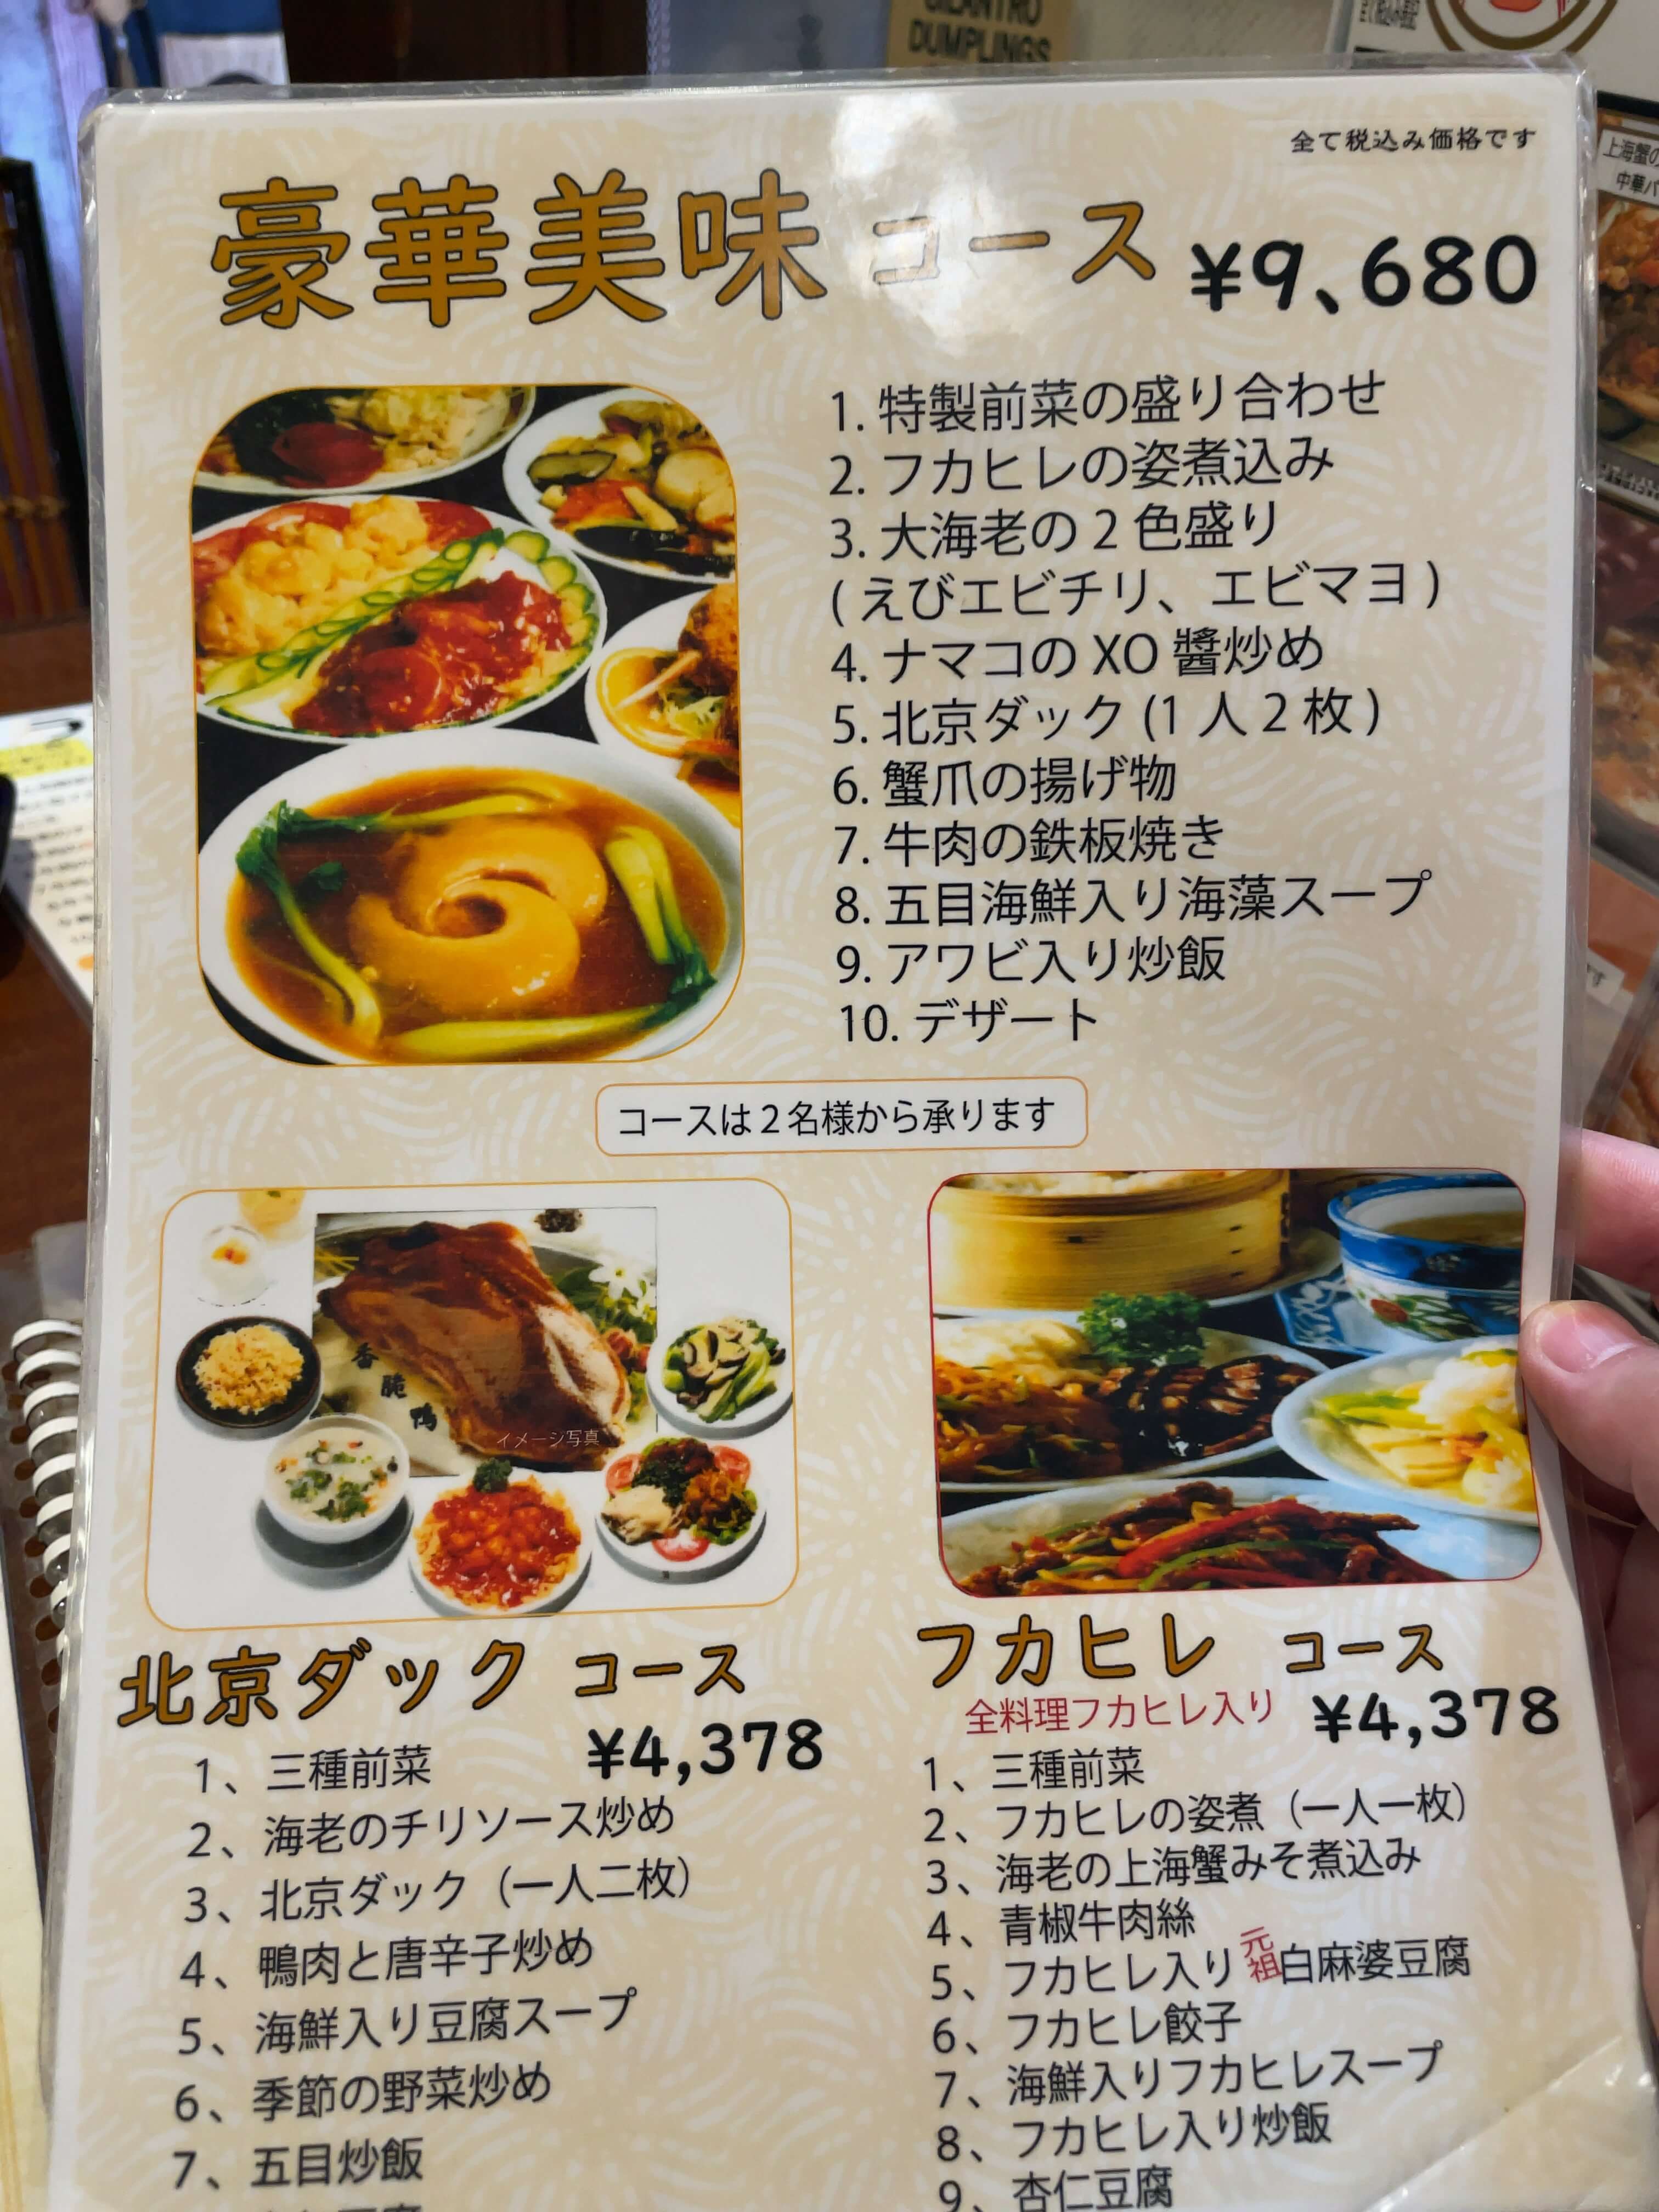 CILANTRO
DUMPLINGS
上海蟹の
全て税込み価格です
豪華美味 コース ¥9、680
1. 特製前菜の盛り合わせ
2. フカヒレの姿煮込み
3. 大海老の2色盛り
(えびエビチリ、エビマヨ)
4. ナマコの XO 醬炒め
5. 北京ダック (1 人 2 枚)
6. 蟹爪の揚げ物
7. 牛肉の鉄板焼き
8. 五目海鮮入り海藻スープ
9. アワビ入り炒飯
10. デザート
コースは2名様から承ります
香脆鴨
イメージ写真
北京ダック コース
¥4,378
1、三種前菜
2、海老のチリソース炒め
3、北京ダック（一人二枚）
4、鴨肉と唐辛子炒め
5、海鮮入り豆腐スープ
6、季節の野菜炒め
7、五目炒飯
フカヒレ コース
全料理フカヒレ入り ¥4,378
1、三種前菜
2、フカヒレの姿煮（一人一枚）
3、海老の上海蟹みそ煮込み
4、青椒牛肉絲
5、フカヒレ入り元祖白麻婆豆腐
6、フカヒレ餃子
7、海鮮入りフカヒレスープ
8、フカヒレ入り炒飯
9、杏仁豆腐